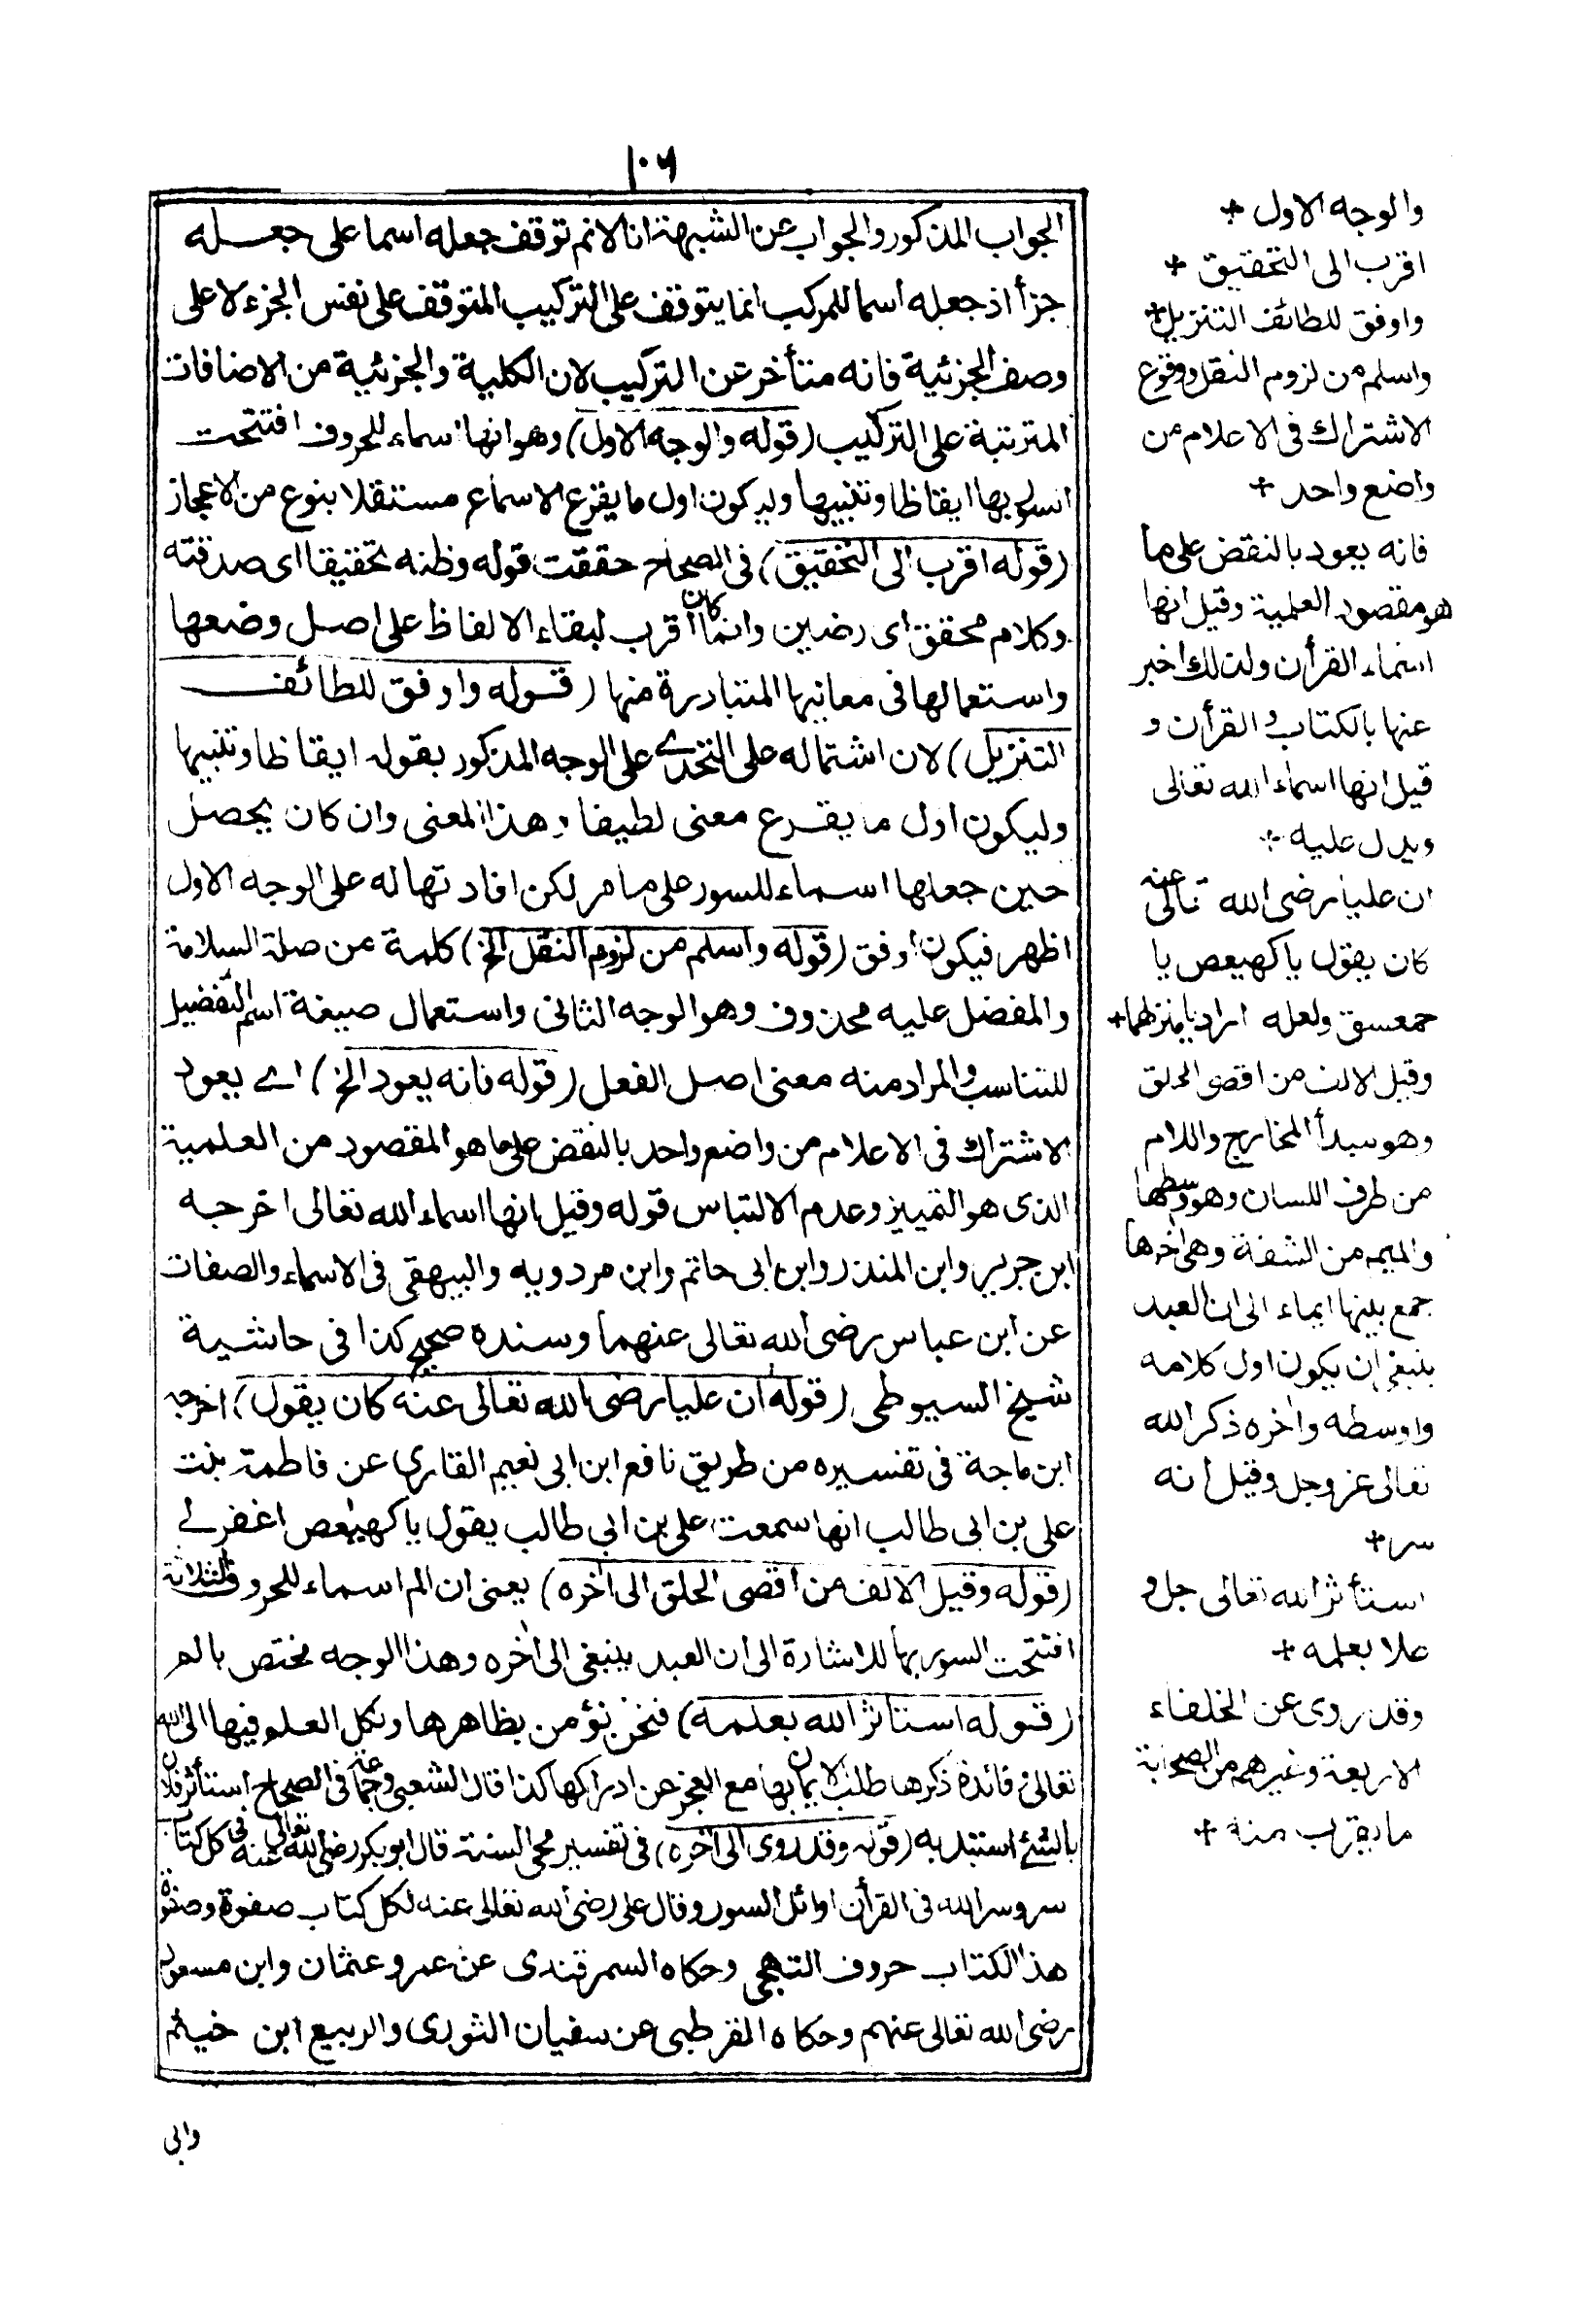 ١٠٦
الجواب المذكور والجواب عن الشبهة انا لانم توقف جعله اسما على جعله
جزأ اذ جعله اسما للمركب انما يتوقف على التركيب المتوقف على نفس الجزء لا على
وصف الجزئية فانه متأخر عن التركيب لان الكلية والجزئية من الاضافات
المترتبة على التركيب (قوله والوجه الاول) وهو انها اسماء للحروف افتتحت
السور بها ايقاظا وتنبيها وليكون اول ما يقرع الاسماع مستقلا بنوع من الاعجاز
(قوله اقرب الى التحقيق) في الصحاح حققت قوله وظنه تحقيقا اى صدقته
وكلام محقق اى رضين وانما كان اقرب لبقاء الالفاظ على اصل وضعها
واستعمالها فى معانيها المتبادرة منها (قوله واوفق للطائف
التنزيل) لان اشتماله على التحدے على الوجه المذكور بقوله ايقاظا وتنبيها
وليكون اول ما يقرع معنى لطيفا وهذا المعنى وان كان يحصل
حين جعلها اسماء للسور على ما مر لكن افادتها له على الوجه الاول
اظهر فيكون اوفق (قوله واسلم من لزوم النقل الخ) كلمة من صلة السلامة
والمفضل عليه محذوف وهو الوجه الثانى واستعمال صيغة اسم التفضيل
للتناسب والمراد منه معنى اصل الفعل (قوله فانه يعود الخ) اے يعود
الاشتراك فى الاعلام من واضع واحد بالنقض على ما هو المقصود من العلمية
الذى هو التمييز وعدم الالتباس قوله وقيل انها اسماء الله تعالى اخرجه
ابن جرير وابن المنذر وابن ابى حاتم وابن مردويه والبيهقى فى الاسماء والصفات
عن ابن عباس رضى الله تعالى عنهما وسنده صحيح كذا فى حاشية
شيخ السيوطى (قوله ان عليا رضى الله تعالى عنه كان يقول) اخرجه
ابن ماجة فى تفسيره من طريق نافع ابن ابى نعيم القارى عن فاطمة بنت
على بن ابى طالب انها سمعت على بن ابى طالب يقول يا كهيعص اغفر لے
(قوله وقيل الالف من اقصى الحلق الى اخره) يعنى ان الم اسماء للحروف الثلاثة
افتتحت السور بها للاشارة الى ان العبد ينبغى الى اخره وهذا الوجه مختص بالم
(قوله استأثر الله بعلمه) فنحن نؤمن بظاهرها ونكل العلم فيها الى الله
تعالى وفائدة ذكرها طلب الايمان بها مع العجز عن ادراكها كذا قال الشعبى وجماعة فى الصحاح استأثر فلان
بالشئ استبد به (قوله وقد روى الى اخره) فى تفسير محى السنة قال ابو بكر رضى الله تعالى عنه فى كل كتاب
سر وسر الله فى القرأن اوائل السور وقال على رضى الله تعالى عنه لكل كتاب صفوة وصفوة
هذا الكتاب حروف التهجى وحكاه السمرقندى عن عمر وعثمان وابن مسعود
رضى الله تعالى عنهم وحكاه القرطبى عن سفيان الثورى والربيع ابن خيثم
وابى
والوجه الاول +
اقرب الى التحقيق +
واوفق للطائف التنزيل +
واسلم من لزوم النقل ووقوع
الاشتراك فى الاعلام من
واضع واحد +
فانه يعود بالنقض على ما
هو مقصود العلمية وقيل انها
اسماء القرأن ولذلك اخبر
عنها بالكتاب والقرأن و
قيل انها اسماء الله تعالى
ويدل عليه +
ان عليا رضى الله تعالى عنه
كان يقول يا كهيعص يا
حمعسق ولعله اراد يا منزلهما +
وقيل الالف من اقصى الحلق
وهو مبدأ المخارج واللام
من طرف اللسان وهو وسطها
والميم من الشفة وهى اخرها
جمع بينها ايماء الى ان العبد
ينبغى ان يكون اول كلامه
واوسطه واخره ذكر الله
تعالى عز وجل وقيل انه
سر +
استأثر الله تعالى جل و
علا بعلمه +
وقد روى عن الخلفاء
الاربعة وغيرهم من الصحابة
ما يقرب منه +